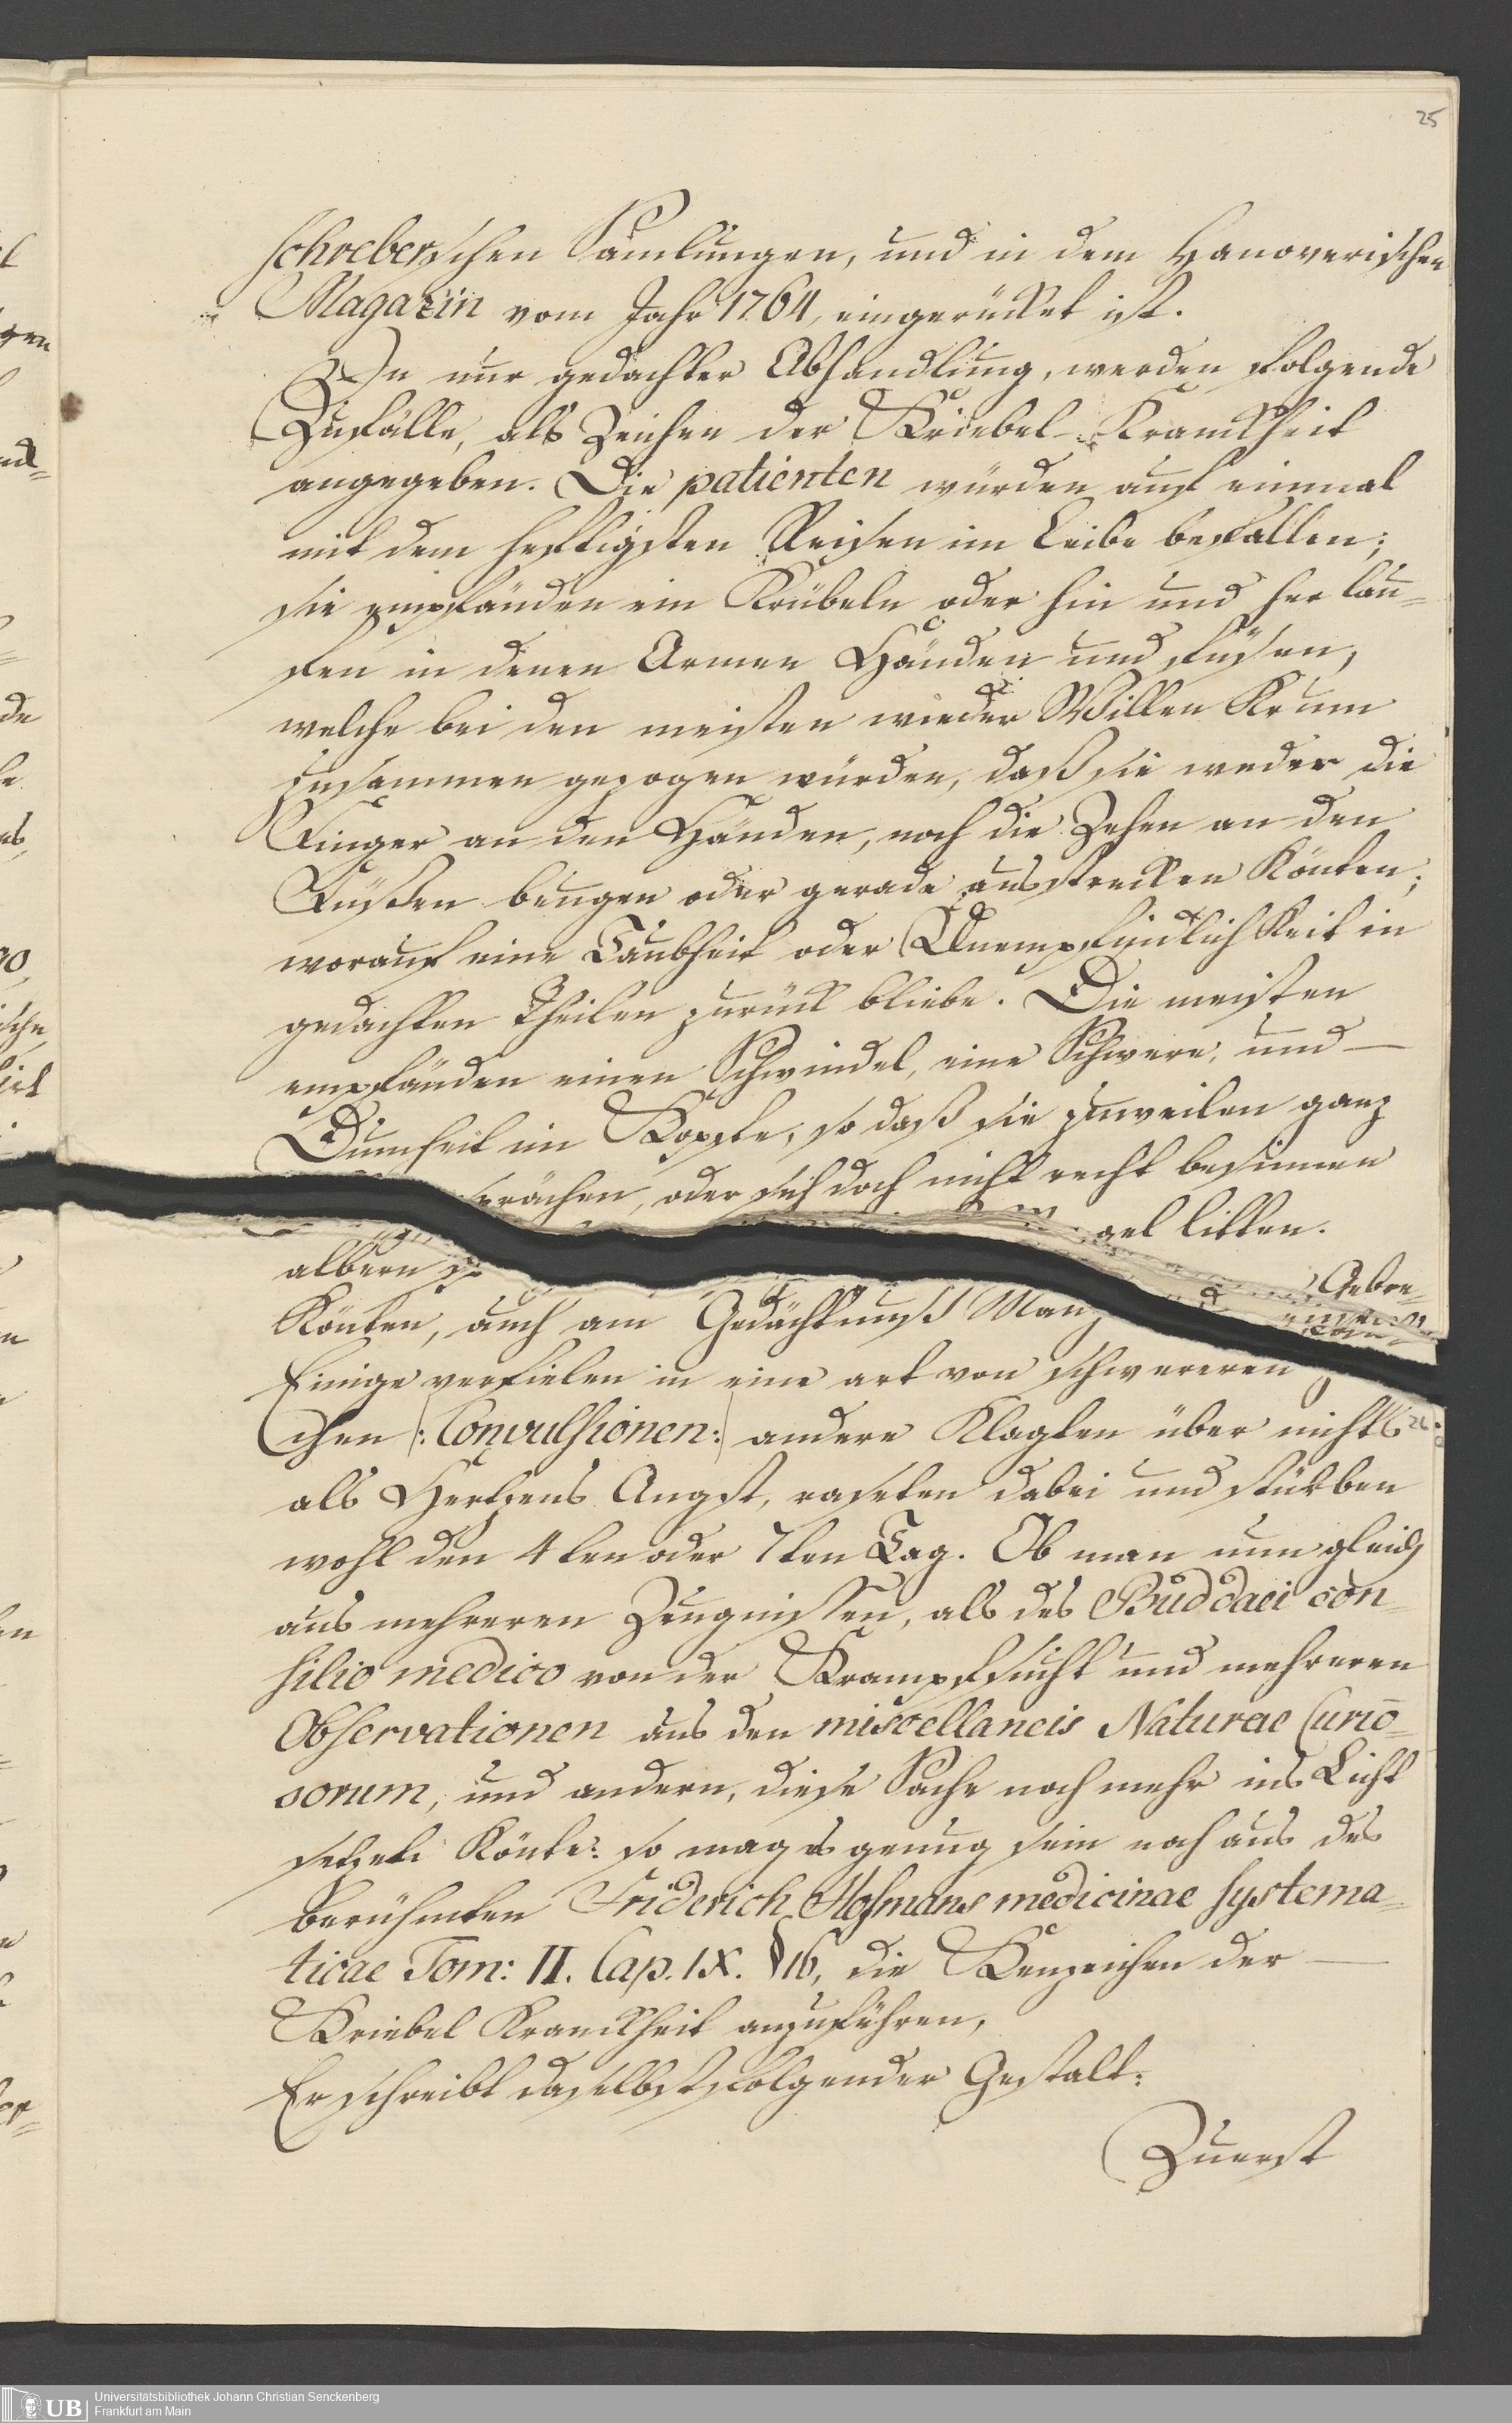 25
schreberschen Samlungen, und in dem Hanoverischen
Magazin vom Jahr 1764, eingerücket ist.
In nur gedachter Abhandlung, werden folgende
Zufälle, als Zeichen der Kriebel-Kranckheit
angegeben. Die patienten würden auf einmal
mit dem heftigsten Reisen im Leibe befallen;
sie empfänden ein Krübeln oder hin und her lau=
fen in denen Armen Händen und füsen,
welche bei den meisten wieder Willen Krum
zusammen gezogen würden, daß sie weder die
Finger an den Händen, noch die Zehen an den
Füßen beugen oder gerade ausstrecken Könten;
worauf eine Taubheit oder Unempfindlichkeit in
gedachten Theilen zurück bliebe. Die meisten
empfänden einen Schwindel, eine Schwere, und —
Dumheit im Kopfe, so daß sie zuweilen ganz
albern sprächen, oder sich doch nicht recht besinnen
Könten, auch am Gedächtnuß Mangel litten.
Einige verfielen in eine art von schwereren Gebre=
chen |: Convulsionen :| andere Klagten über nichts
als Hertzens Angst, raseten dabei und stürben
wohl den 4ten oder 7ten Tag. Ob man nun gleich
aus mehreren Zeugnissen, als des Buddaei con
silio medico von der Krampfsucht und mehreren
Observationen aus den miscellaneis Naturae Curio=
sorum, und andern, diese Sache noch mehr ins Licht
setzen Könte: so mag es genug sein noch aus des
berühmten Friderich Hofmans medicinae systema=
ticae Tom: II. Cap. IX. § 16, die Kenzeichen der —
Kriebel Kranckheit anzuführen,
Er schreibt daselbst folgender Gestalt:
Zuerst
UB
Universitätsbibliothek Johann Christian Senckenberg
Frankfurt am Main